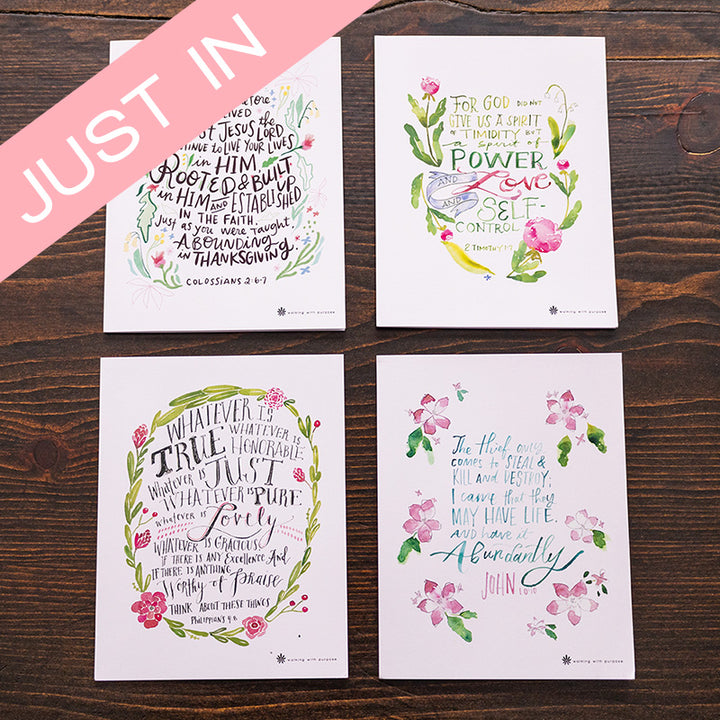 JUST IN
the
JESUS LORD
TO LIVE YOUR LIVES
in HIM
ROOTED & BUILT
in HIM AND UP
ESTABLISHED
IN THE FAITH,
Just as you were Taught,
ABOUNDING
IN THANKSGIVING
COLOSSIANS 2:6-7
walking with purpose
FOR GOD DID NOT
GIVE US A SPIRIT
OF TIMIDITY BUT
a spirit of
POWER
AND Love
AND SELF-
CONTROL
2 TIMOTHY 1:7
walking with purpose
WHATEVER IS
TRUE WHATEVER IS
HONORABLE
WHATEVER IS JUST
WHATEVER IS PURE
whatever is Lovely
WHATEVER IS GRACIOUS
IF THERE IS ANY Excellence And
IF THERE IS ANYTHING
Worthy of Praise
THINK ABOUT THESE THINGS
Philippians 4:8
walking with purpose
The Thief only
COMES to STEAL &
KILL AND DESTROY;
I came that they
MAY HAVE LIFE.
AND have it
Abundantly
JOHN 10:10
walking with purpose